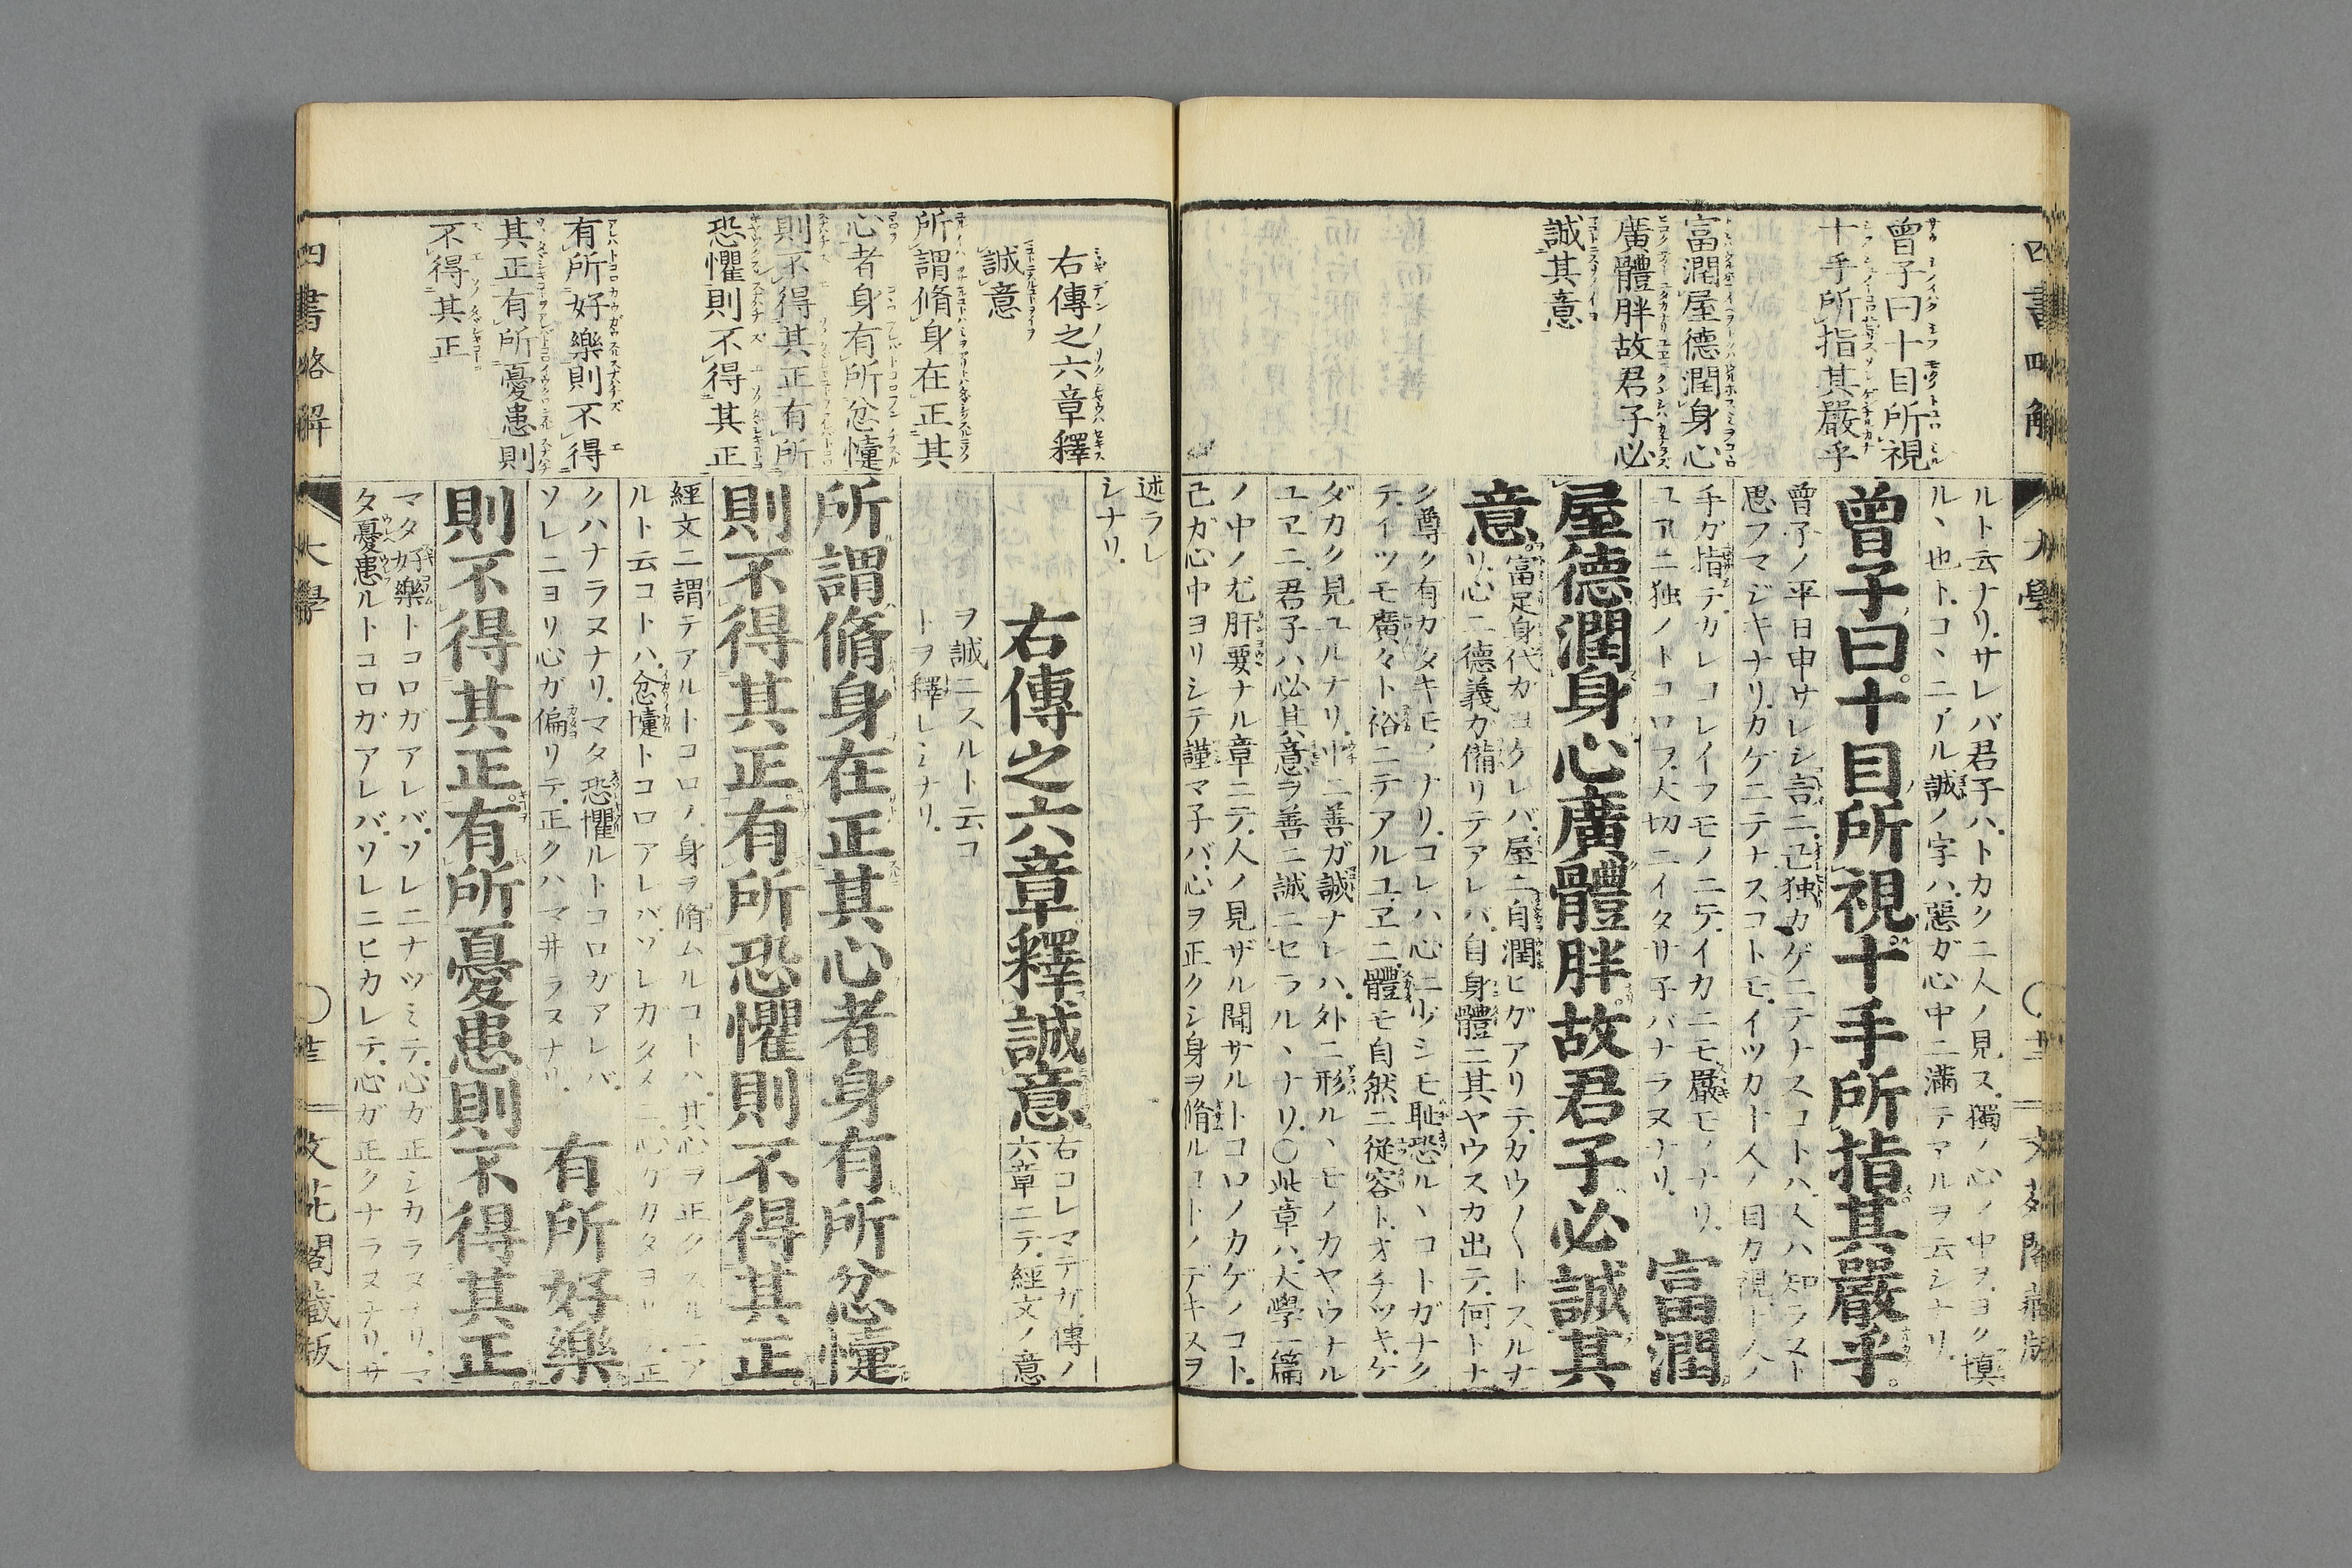 四書略解
大學
曾子曰十目所視
十手所指其嚴乎
富潤屋德潤身心
廣體胖故君子必
誠其意
ルト云ナリ.サレバ君子ハ.トカク二人ノ見ヌ.獨ノ心ノ中ヲ.ヨク慎
ルヽ也ト.コヽニアル誠ノ字ハ.惡ガ心中ニ滿テアルヲ云シナリ.
曾子曰。十目所視。十手所指。其嚴乎。
曾子ノ平日申サレシ言ニ.己独カゲニテナスコトハ.人ハ知ラヌト
思フマジキナリ.カゲニテナスコトモ.イツカ十人ノ目カ視.十人ノ
手ガ指テ.カレコレイフモノニテ.イカニモ嚴モノナリ.
ユヱニ独ノトコロヲ.大切ニイタサ子バナラヌナリ.
富潤
屋德潤身心廣體胖。故君子必誠其
意。
富足身代ガヨクレバ.屋ニ自潤ヒガアリテ.カウ〱トスルナ
リ.心ニ德義ガ備リテアレバ.自身體ニ其ヤウスカ出テ.何トナ
ク尊ク有ガタキモノナリ.コレハ心ニ少シモ恥恐ルヽコトガナク
テ.イツモ廣々ト裕ニテアルユヱニ.體モ自然ニ従容ト.オチツキ.ケ
ダカク見ユルナリ.中ニ善ガ誠ナレハ.外ニ形ルヽモノカヤウナル
ユヱニ.君子ハ必其意ヲ善ニ誠ニセラルヽナリ.〇此章ハ.大學一篇
ノ中ノ尤肝要ナル章ニテ.人ノ見ザル聞サルトコロノカゲノコト.
己ガ心中ヨリシテ謹マ子バ.心ヲ正クシ身ヲ脩ルコトノデキヌヲ
右傳之六章釋
誠意
所謂脩身在正其
心者身有所忿懥
則不得其正有所
恐懼則不得其正
有所好樂則不得
其正有所憂患則
不得其正
述ラレ
シナリ.
右傳之六章。釋誠意
右コレマテガ.傳ノ
六章ニテ.經文ノ意
ヲ誠ニスルト云コ
トヲ釋レシナリ.
所謂脩身在正其心者身有所忿懥
則不得其正。有所恐懼則不得其正。
經文ニ謂テアルトコロノ.身ヲ脩ムルコトハ.其心ヲ正クスルニア
ルト云コトハ.忿懥トコロアレバ.ソレガタメニ.心ガカタヨリ.正
クハナラヌナリ.マタ恐懼ルトコロガアレバ.
ソレニヨリ心ガ偏リテ.正クハマ井ラヌナリ.
有所好樂
則不得其正。有所憂患則不得其正。
マタ好樂トコロガアレバ.ソレニナヅミテ.心カ正シカラヌナリ.マ
タ憂患ルトコロガアレバ.ソレニヒカレテ.心ガ正クナラヌナリ.サ
四書略解
大學